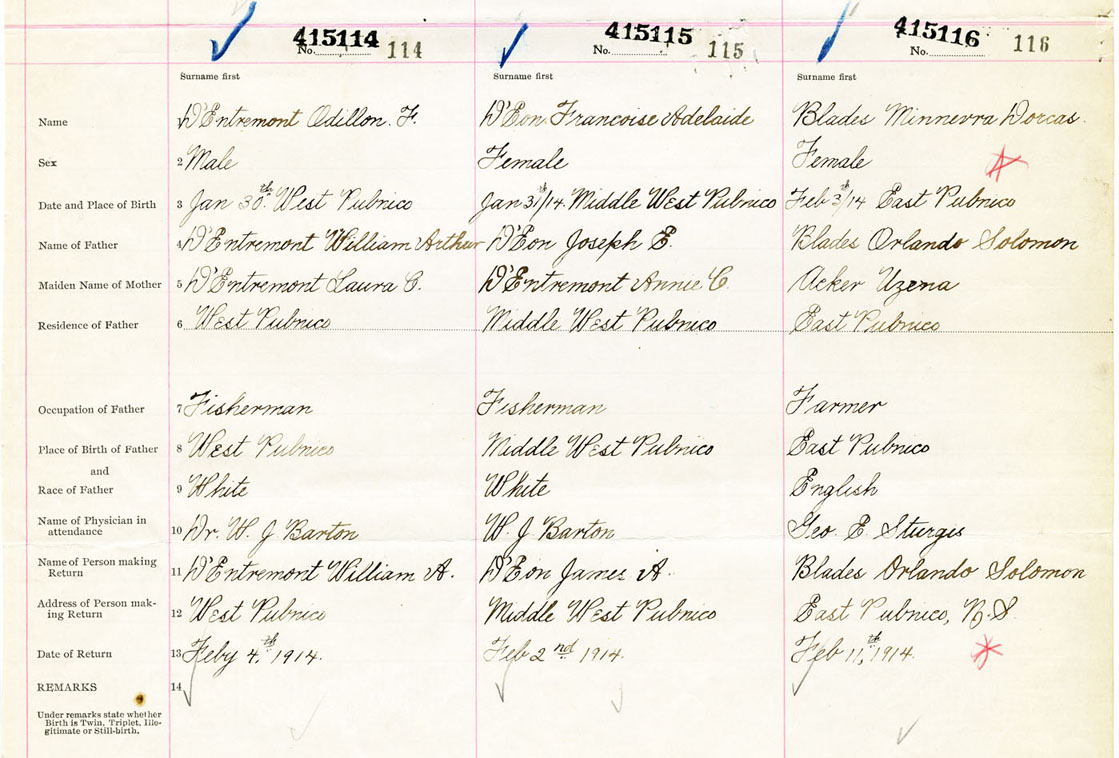 415114 415115 415116
No. 114 No. 115 No. 116
Surname first Surname first Surname first
Name 1 D'Entremont Odillon. F. D'Eon Francoise Adelaide Blades Minnevra Dorcas.
Sex 2 Male Female Female
Date and Place of Birth 3 Jan 30th. West Pubnico Jan 31th/14. Middle West Pubnico Feb 3th/14 East Pubnico
Name of Father 4 D'Entremont William Arthur D'Eon Joseph E. Blades Orlando Solomon
Maiden Name of Mother 5 D'Entremont Laura C. D'Entremont Annie C. Acker Uzena
Residence of Father 6 West Pubnico Middle West Pubnico East Pubnico
Occupation of Father 7 Fisherman Fisherman Farmer
Place of Birth of Father 8 West Pubnico Middle West Pubnico East Pubnico
and
Race of Father 9 White White English
Name of Physician in
attendance 10 Dr. W. J Barton W. J Barton Geo. E. Sturgis
Name of Person making
Return 11 D'Entremont William A. D'Eon James A. Blades Orlando Solomon
Address of Person mak-
ing Return 12 West Pubnico Middle West Pubnico East Pubnico, N.S.
Date of Return 13 Feby 4.th 1914. Feb 2nd 1914. Feb 11,th 1914.
REMARKS 14
Under remarks state whether
Birth is Twin, Triplet, Ille-
gitimate or Still-birth.